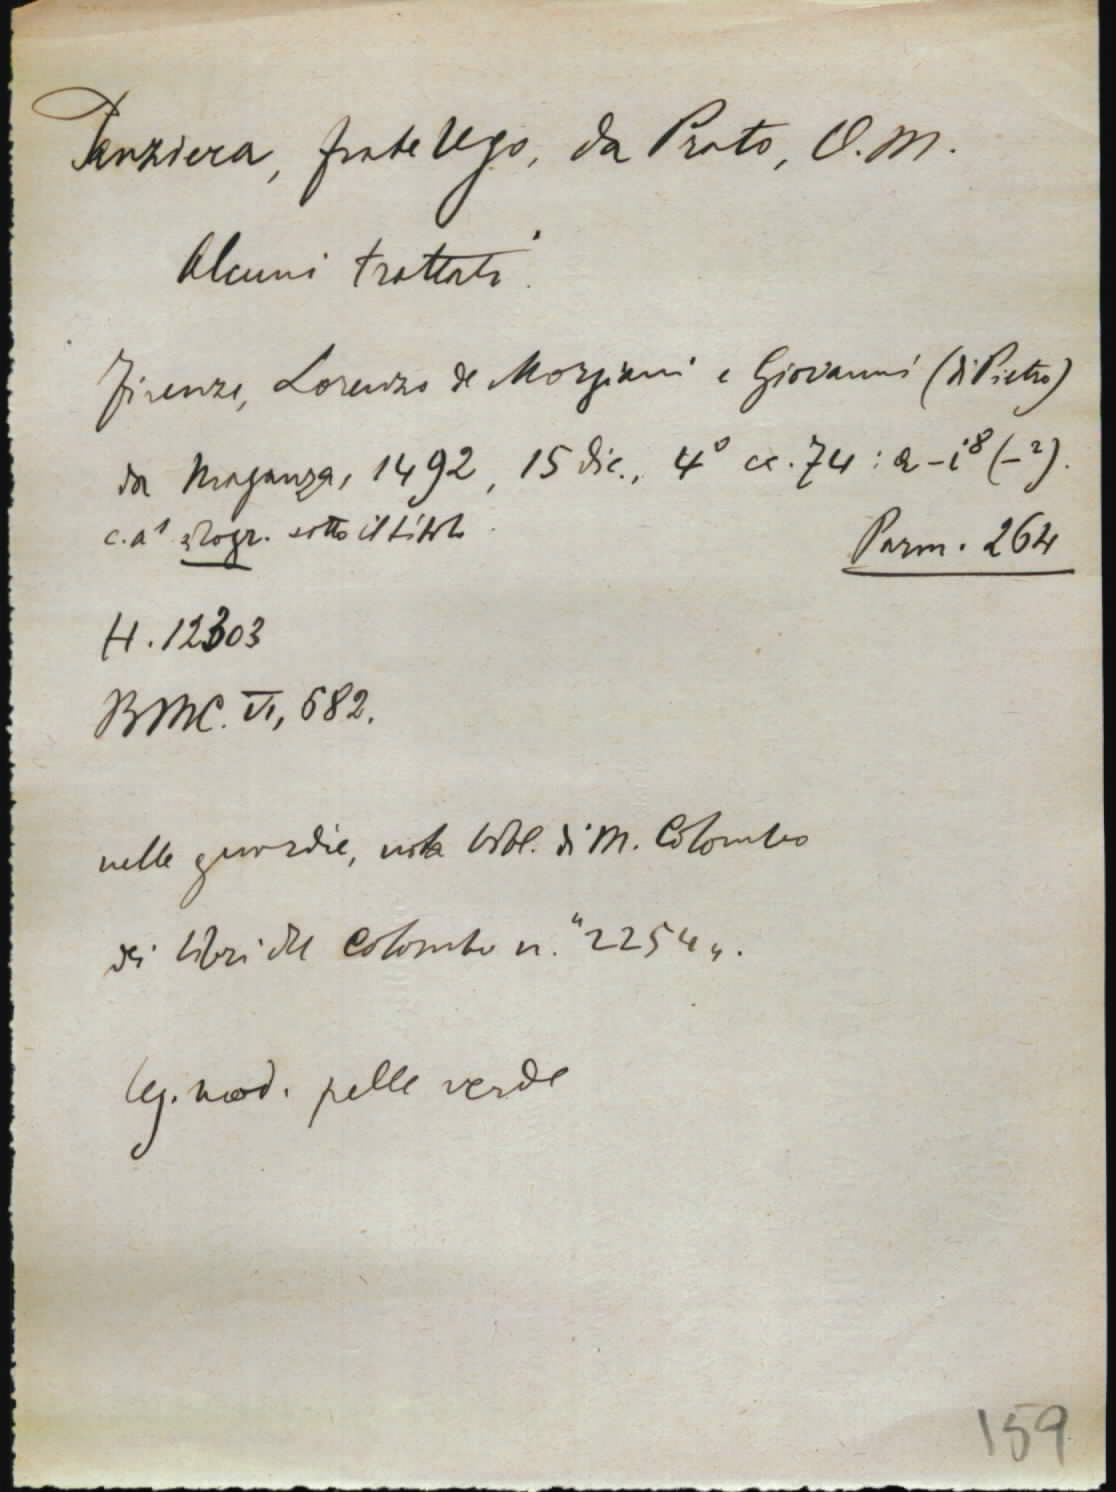 Panziera, frate Ugo, da Prato, O.M.
Alcuni trattati.
Firenze, Lorenzo de Morgiani e Giovanni (di Pietro)
da Maganza, 1492, 15 dic., 4° cc. 74 : a-i⁸(-²).
c. a¹ silogr. sotto il titolo
Parm. 264
H. 12303
BMC. VI, 682.
nelle guardie, nota bibl. di M. Colombo
dei libri del Colombo n. "2254".
leg. mod. pelle verde
159